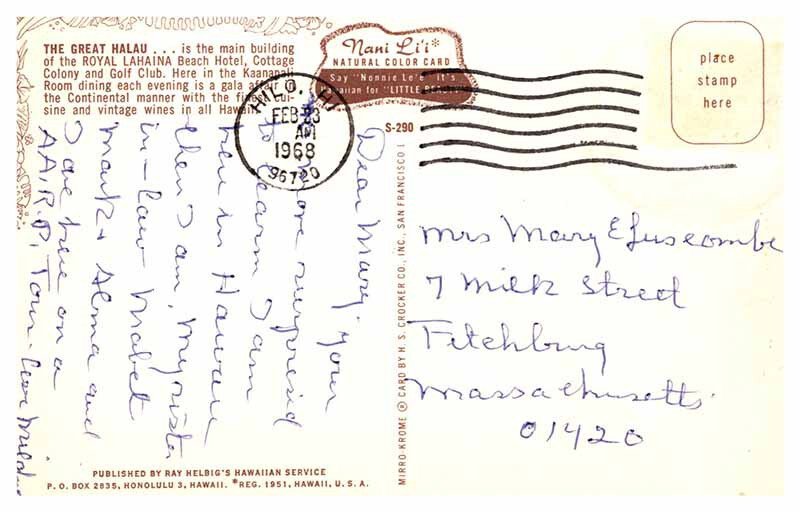 THE GREAT HALAU . . . is the main building
of the ROYAL LAHAINA Beach Hotel, Cottage
Colony and Golf Club. Here in the Kaanapali
Room dining each evening is a gala affair in
the Continental manner with the finest cui-
sine and vintage wines in all Hawaii.
Nani Li'i*
NATURAL COLOR CARD
Say "Nonnie Le'e" it's
Hawaiian for "LITTLE
S-290
place
stamp
here
HILO, HI
FEB 23
AM
1968
96720
Dear Mary. your
more surprised
to learn I am
here in Hawaii
then I am. My sister
in-law Mabel
Mark & Alma and
I are here on a
A.A.R.P. Tour - Love Mildred
Mrs Mary E Luscombe
7 Milk Street
Fitchburg
Massachusetts.
01420
MIRRO-KROME ® CARD BY H. S. CROCKER CO., INC., SAN FRANCISCO 1
PUBLISHED BY RAY HELBIG'S HAWAIIAN SERVICE
P. O. BOX 2835, HONOLULU 3, HAWAII. *REG. 1951, HAWAII, U. S. A.